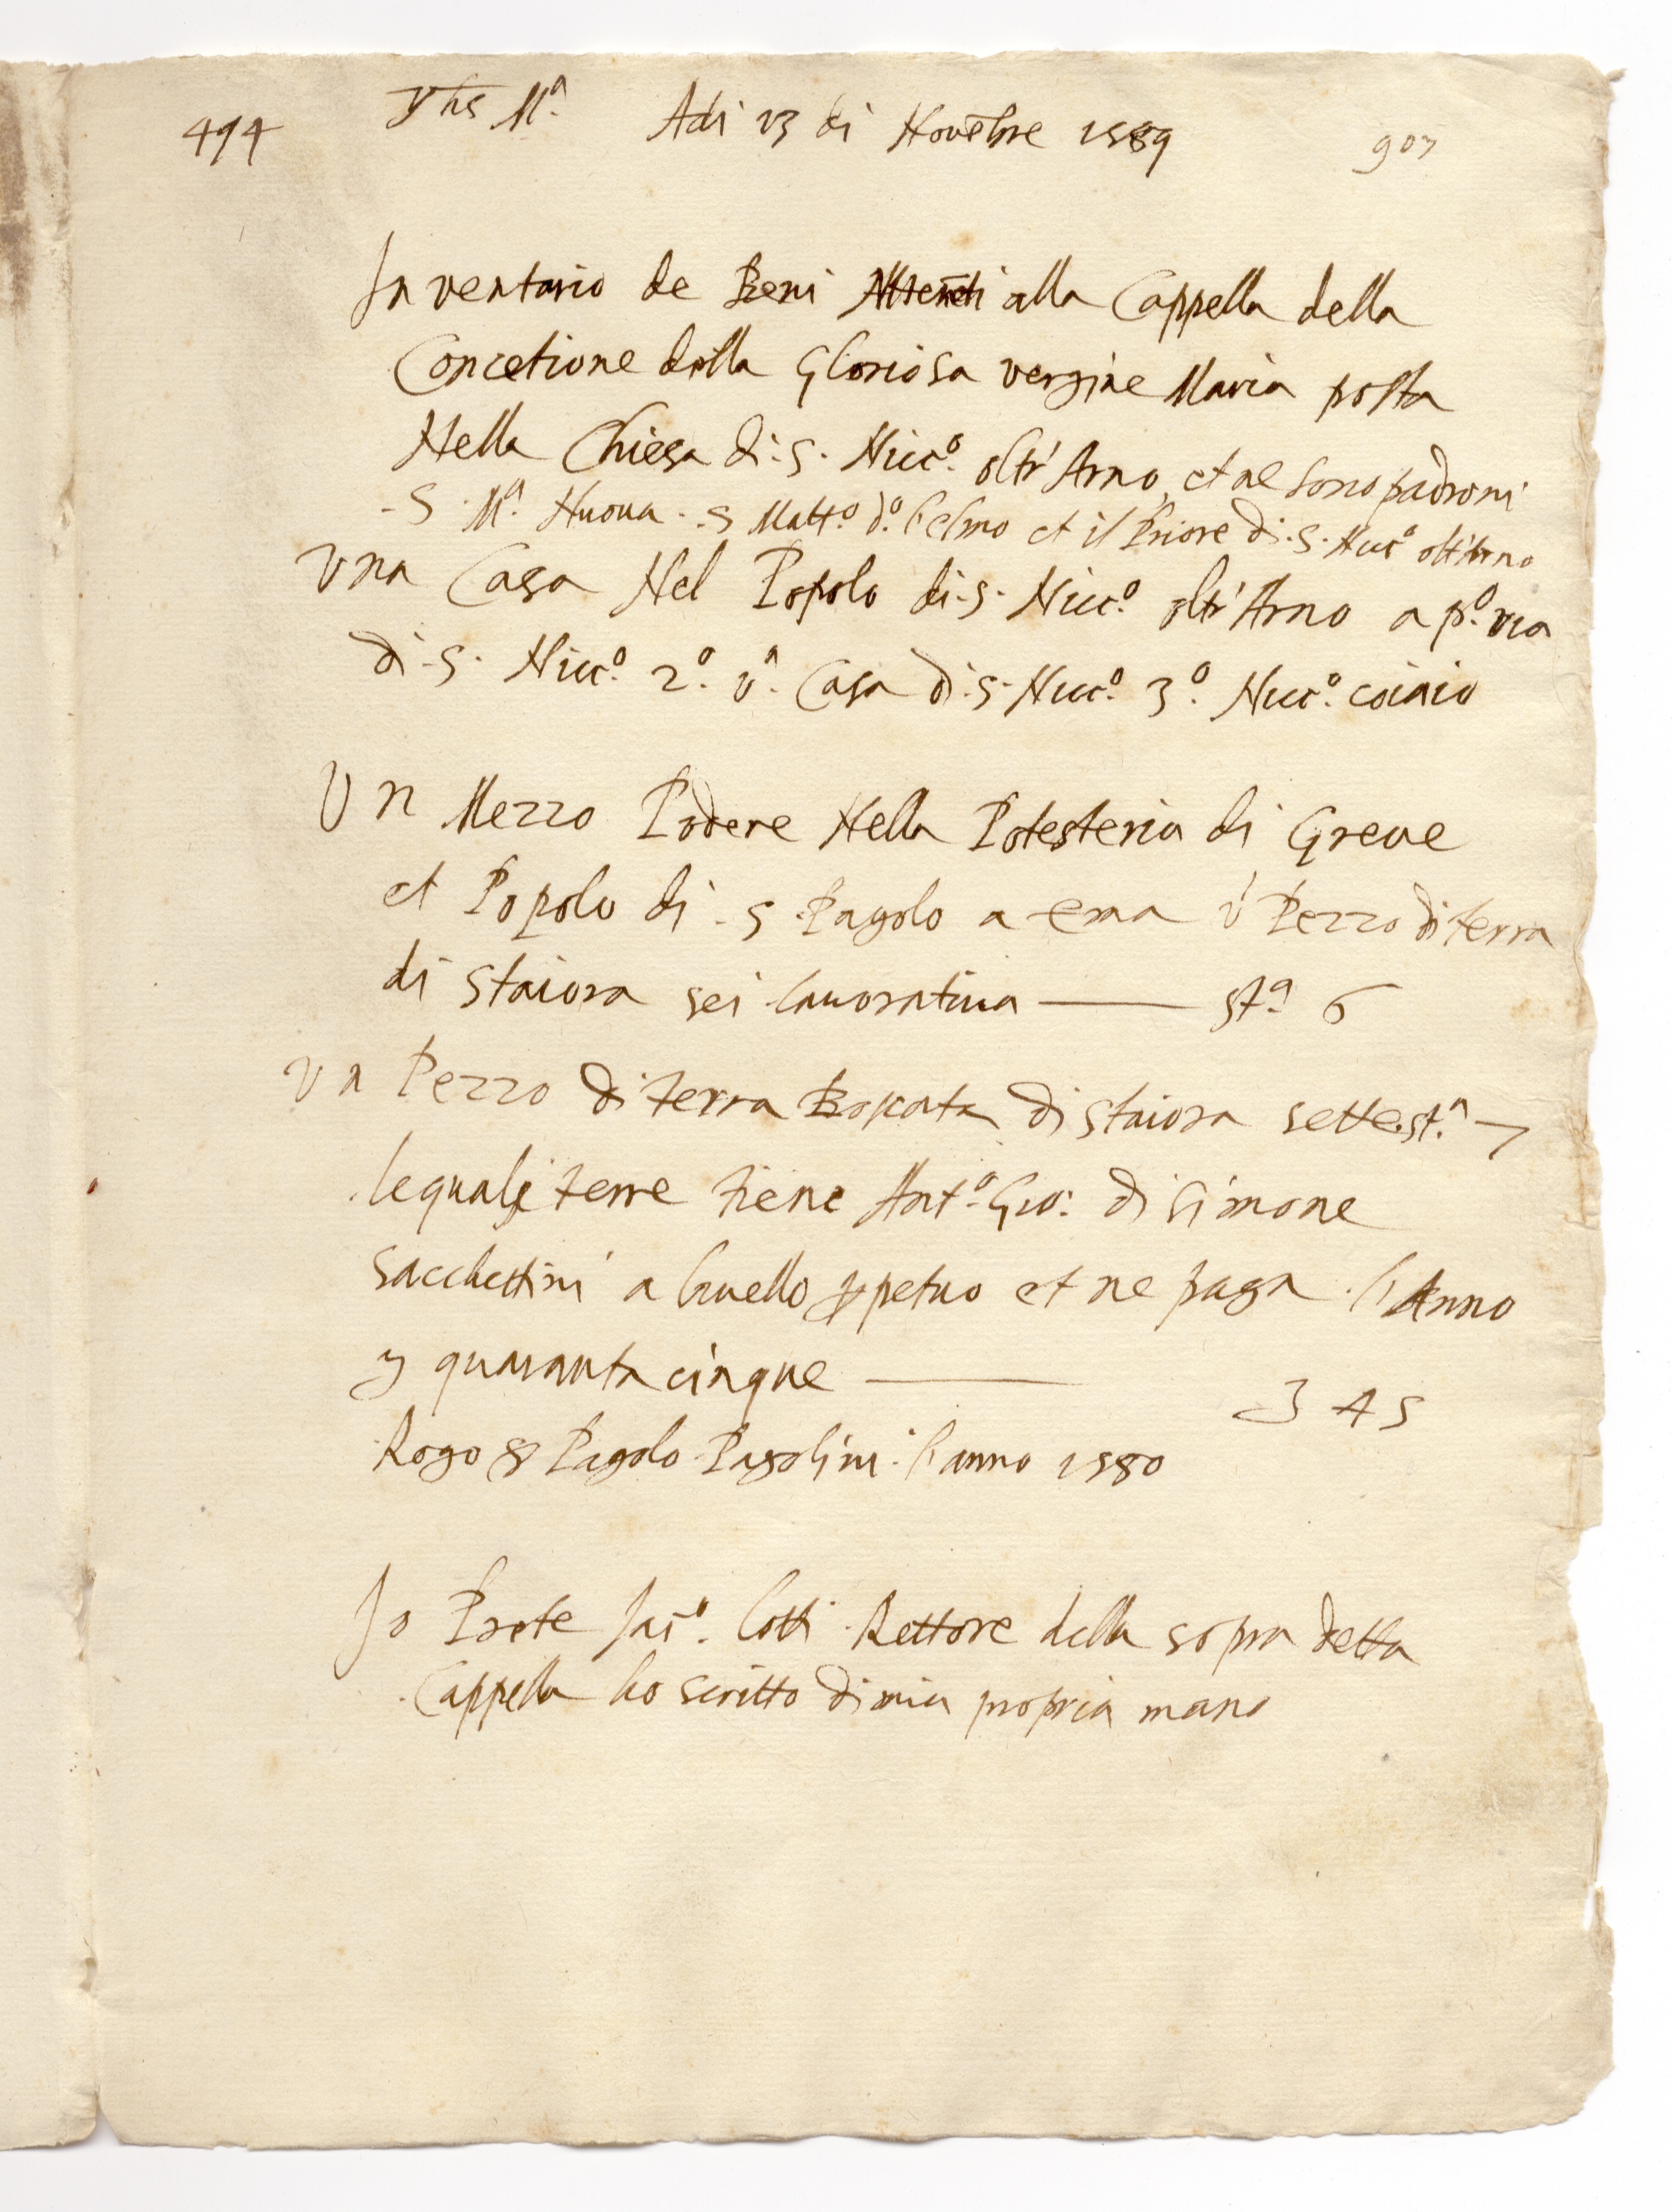 494 Yhs Mª Adi 13 di Novẽbre 1589 907
Inventario de Beni Attenẽti alla Cappella della
Concetione della Gloriosa vergine Maria posta
Nella Chiesa di .S. Niccº oltr'Arno, et ne sono padroni
.S. Mª Nuova .S Mattº et il Priore di .S. Niccº oltr'Arno
Una Casa Nel Popolo di .S. Niccº oltr'Arno a pº via
di .S. Niccº 2º vª Casa di .S. Niccº 3º Niccº coiaio
Un Mezzo Podere Nella Potesteria di Greve
et Popolo di .S. Pagolo a ema ú Pezzo di terra
di staiora sei lavorativa —— stª 6
Un Pezzo di terra Boscata di staiora sette. stª 7
lequali terre tiene Antº Gio: di Simone
Sacchettini a livello ꝑpetuo et ne paga l'Anno
quaranta cinque —— 45
Rogo Pagolo Pagolini l'anno 1580
Io Prete Jacº Lotti Rettore della sopra detta
Cappella ho scritto di mia propria mano